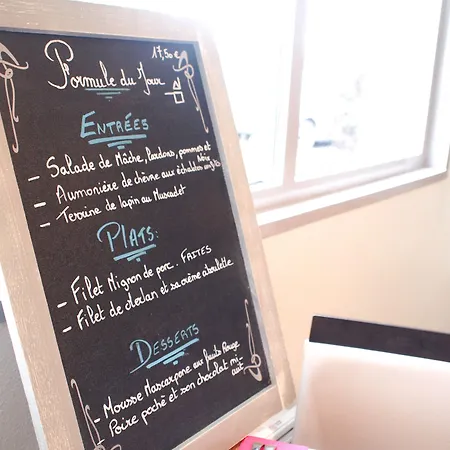 Formule du Jour 17,50 €
ENTRÉES
- Salade de Mâche, lardons, pommes et
- Aumonière de chèvre aux échalotes confites
- Terrine de lapin au Muscadet
PLATS:
- Filet Mignon de porc. FAITES
- Filet de Merlan et sa crème ciboulette
DESSERTS
- Mousse Mascarpone aux fruits Rouge
Poire poché et son chocolat mi-
cuit